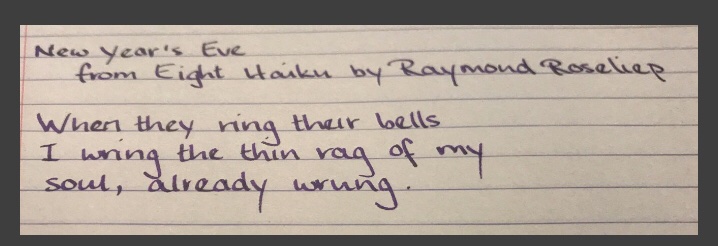 New Year's Eve
from Eight Haiku by Raymond Roseliep
When they ring their bells
I wring the thin rag of my
soul, already wrung.